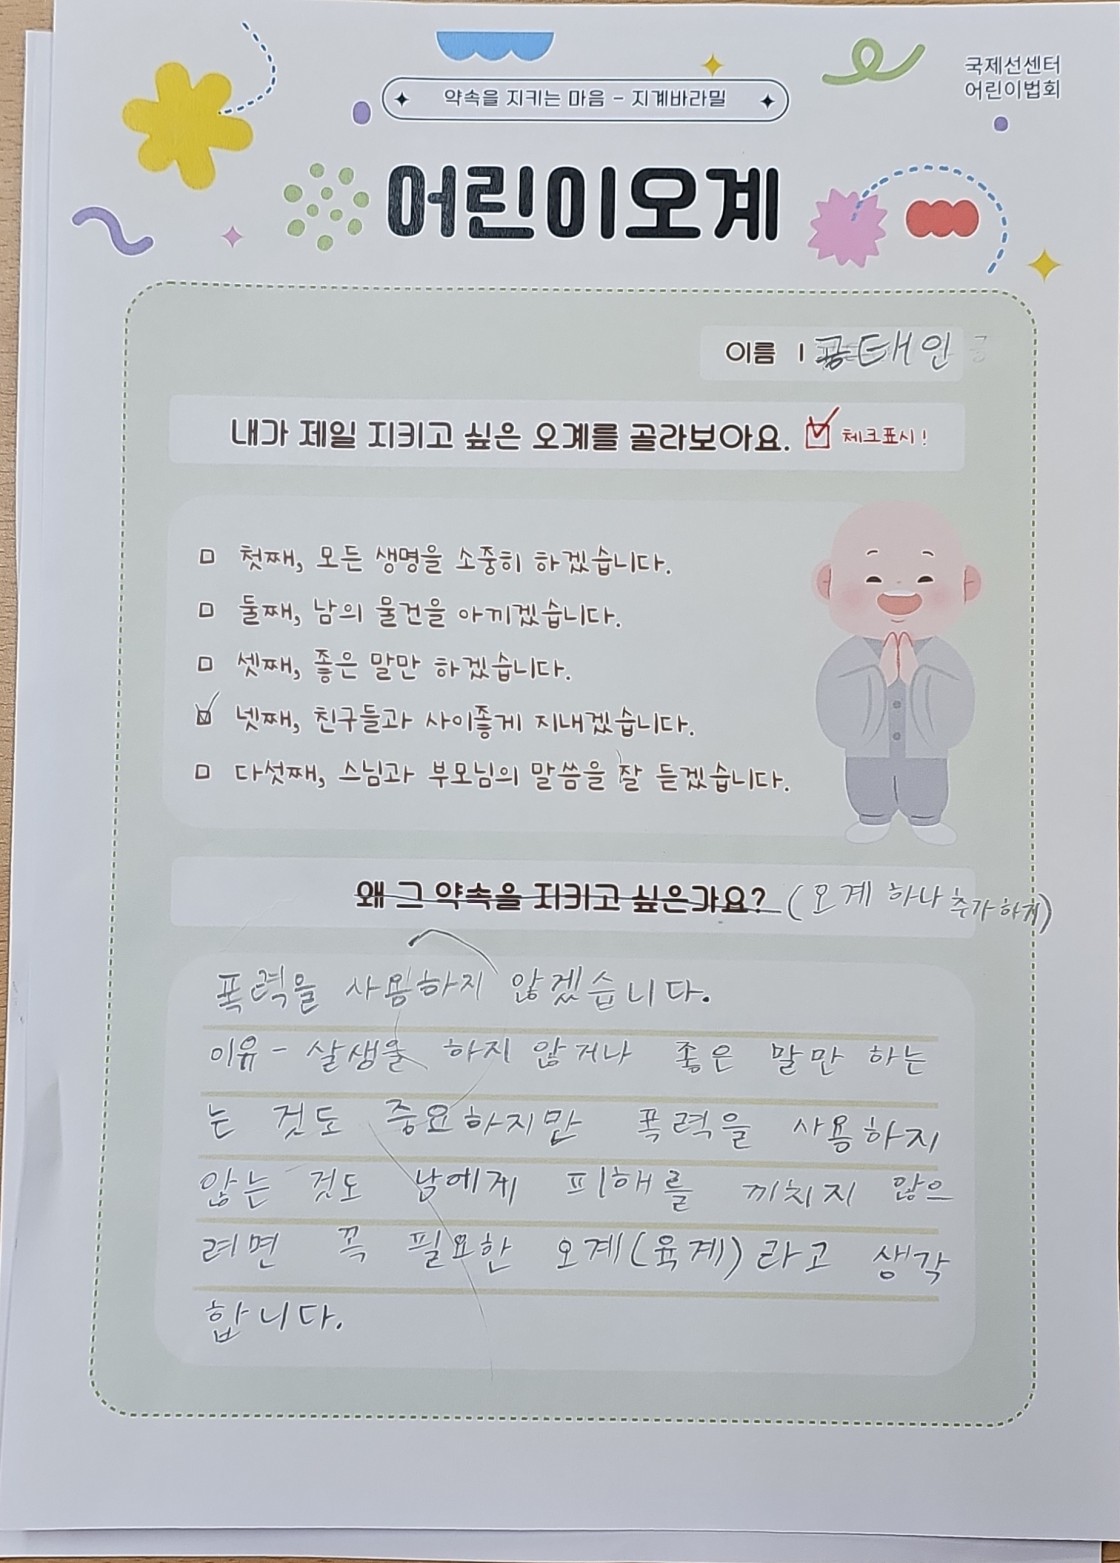 국제선센터
어린이법회
약속을 지키는 마음 - 지계바라밀
어린이오계
이름 | 공태인
내가 제일 지키고 싶은 오계를 골라보아요. 체크표시!
첫째, 모든 생명을 소중히 하겠습니다.
둘째, 남의 물건을 아끼겠습니다.
셋째, 좋은 말만 하겠습니다.
넷째, 친구들과 사이좋게 지내겠습니다.
다섯째, 스님과 부모님의 말씀을 잘 듣겠습니다.
왜 그 약속을 지키고 싶은가요? (오계 하나 추가하기)
폭력을 사용하지 않겠습니다.
이유 - 살생을 하지 않거나 좋은 말만 하는
는 것도 중요하지만 폭력을 사용하지
않는 것도 남에게 피해를 끼치지 않으
려면 꼭 필요한 오계(육계)라고 생각
합니다.